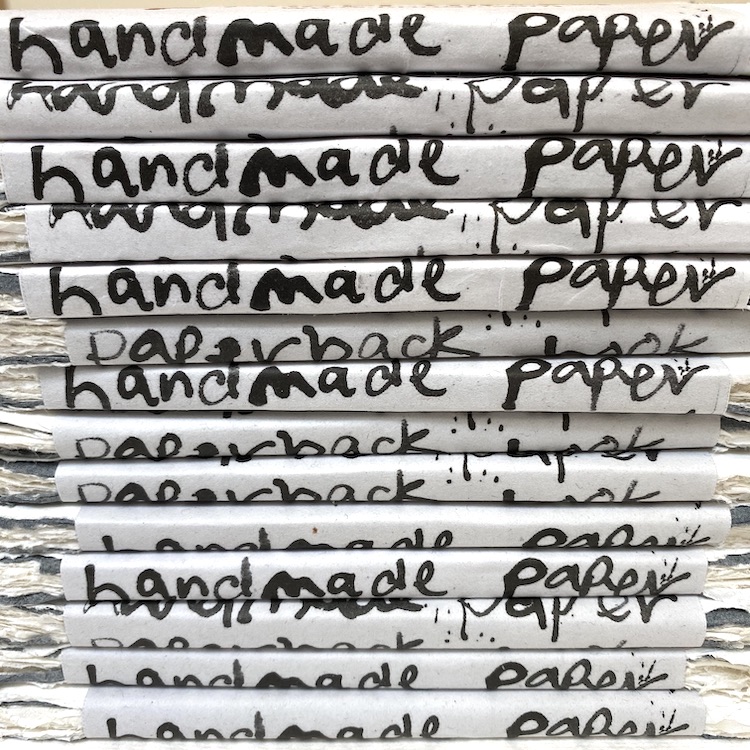 handmade paper
handmade paper
handmade paper
handmade paper
handmade paper
paperback book
handmade paper
paperback
paperback book
handmade paper
handmade paper
handmade paper
paperback
handmade paper
handmade paper